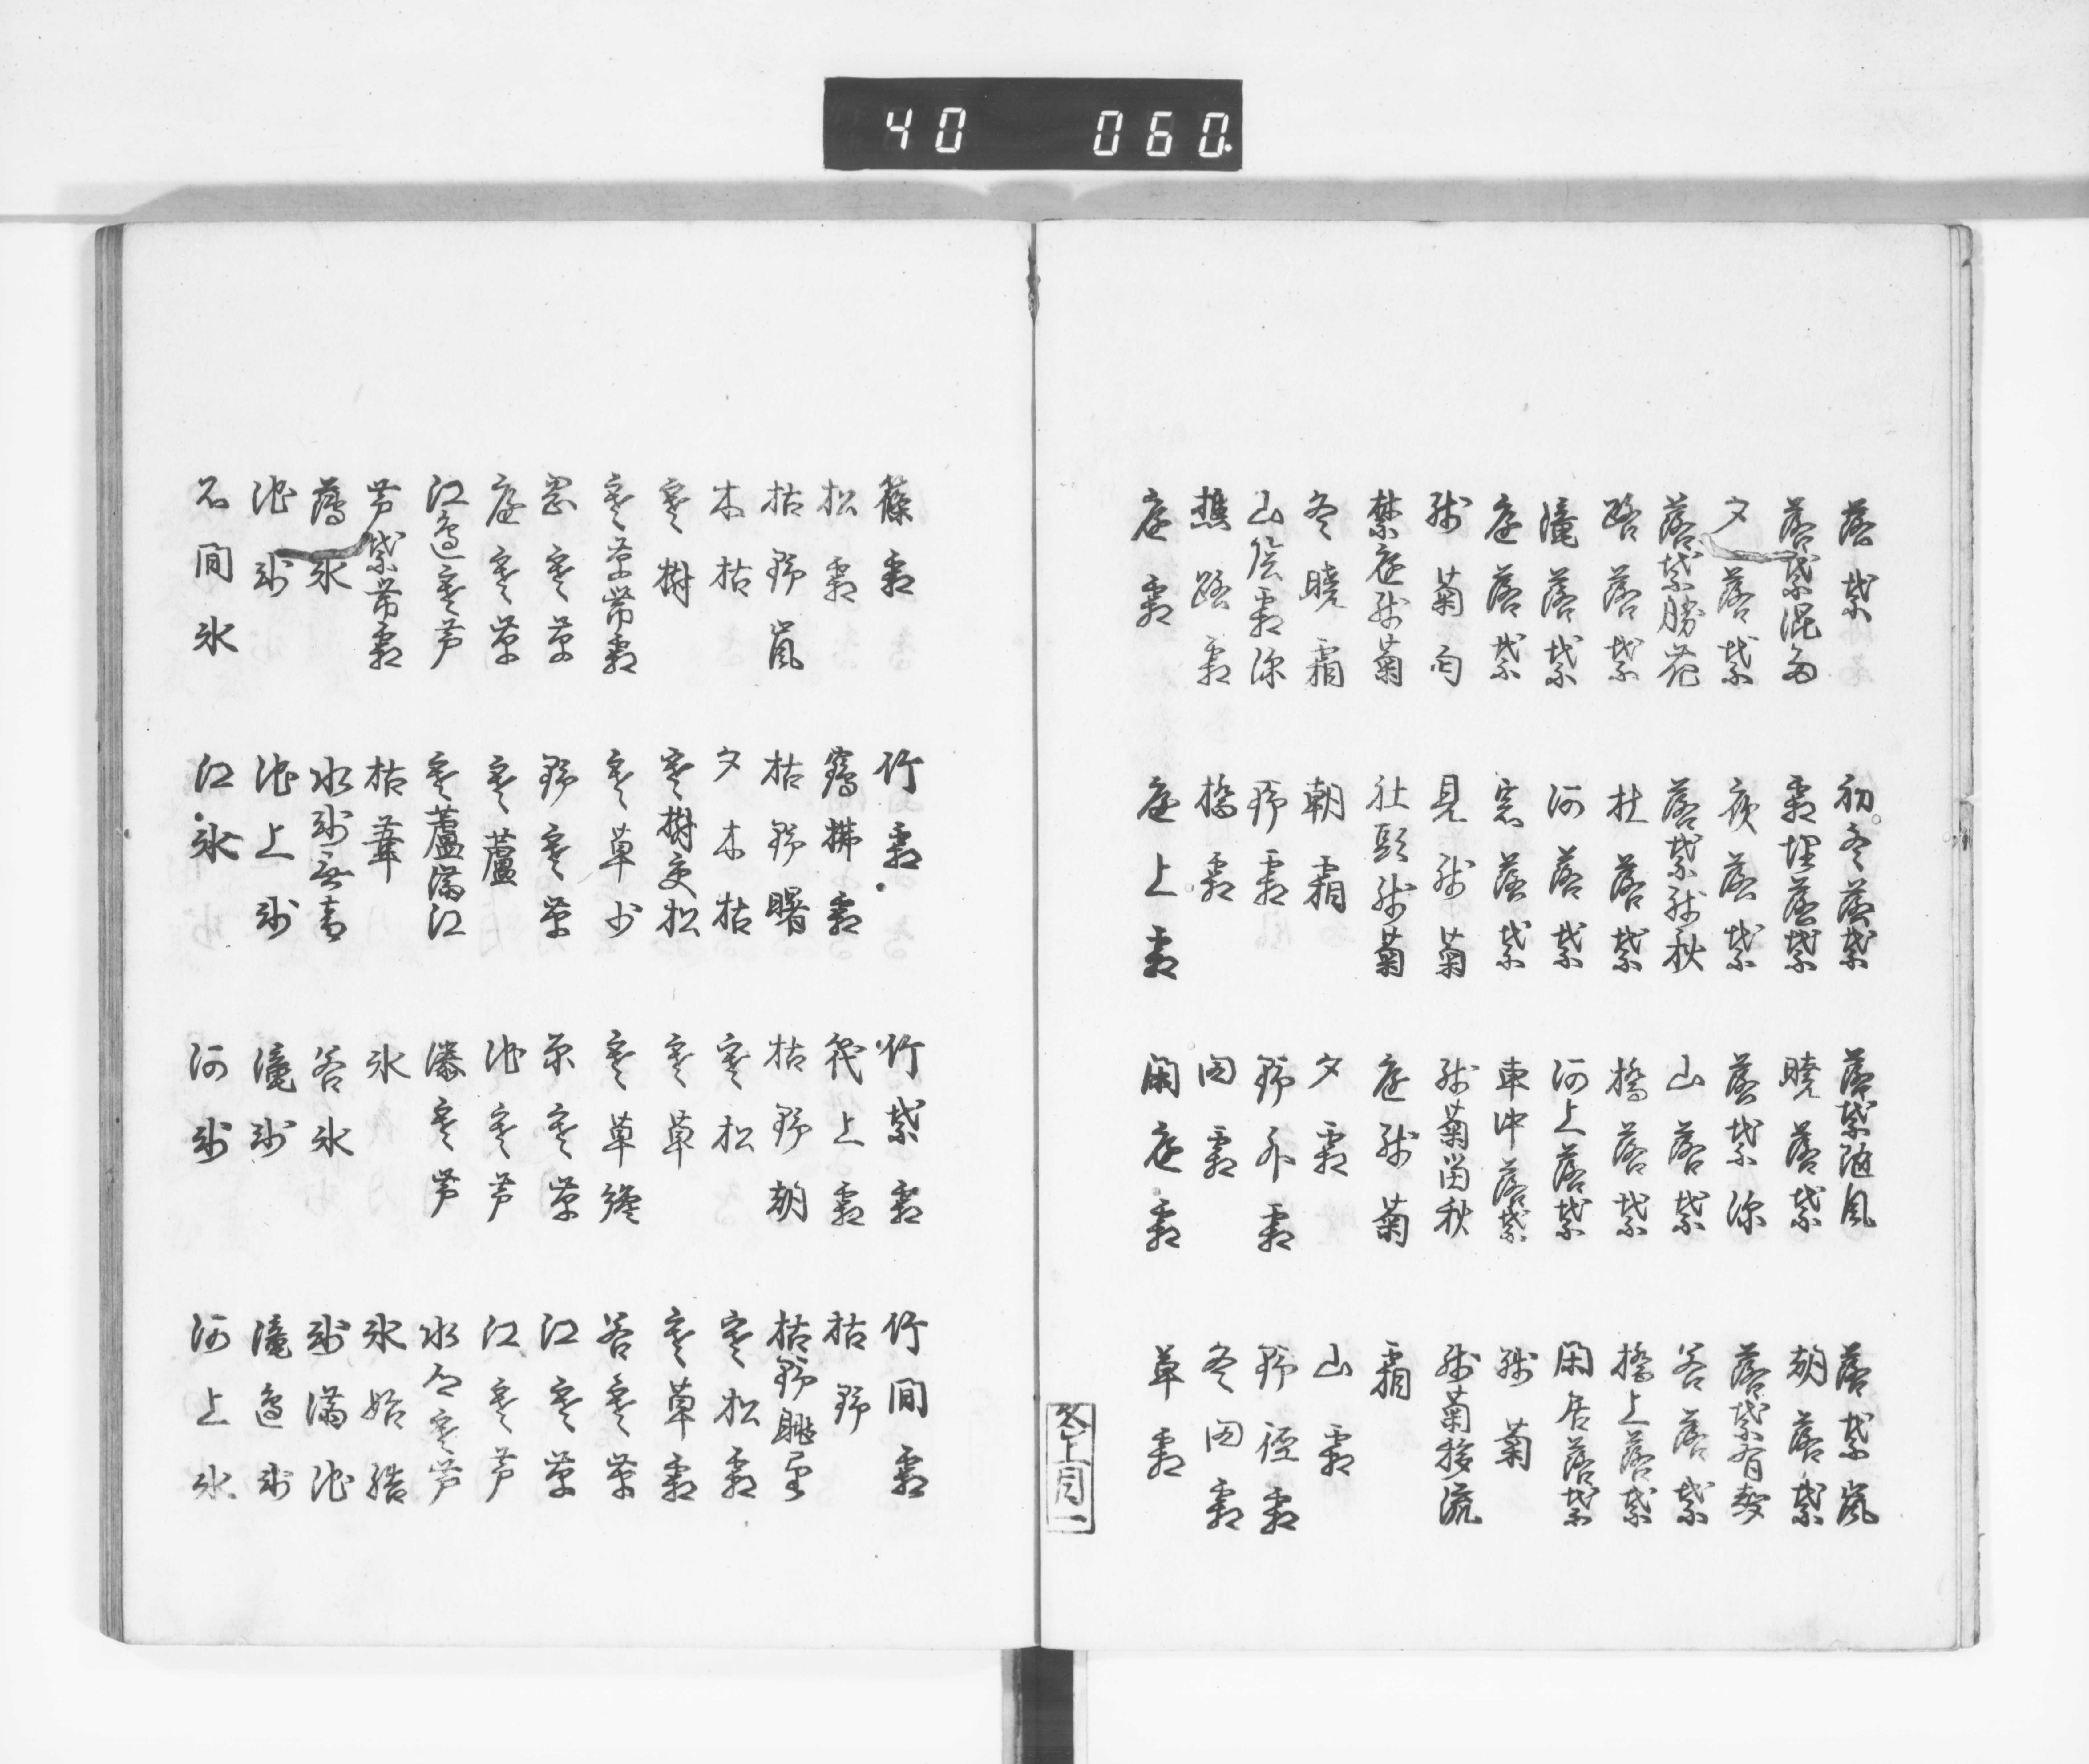 落葉　初冬落葉　落葉随風　落葉嵐
落葉混雨　霜埋落葉　暁落葉　朝落葉
夕落葉　夜落葉　落葉深　落葉有声
落葉勝花　落葉残秋　山落葉　谷落葉
路落葉　杜落葉　橋落葉　橋上落葉
滝落葉　河落葉　河上落葉　閑居落葉
庭落葉　窓落葉　車中落葉　残菊
残菊匂　見残菊　残菊留秋　残菊移流
禁庭残菊　社頭残菊　庭残菊　霜
冬暁霜　朝霜　夕霜　山霜
山陰霜深　野霜　野外霜　野径霜
樵路霜　橋霜　田霜　冬田霜
庭霜　庭上霜　閑庭霜　草霜
冬上目一
篠霜　竹霜　竹葉霜　竹間霜
松霜　鶴払霜　筏上霜　枯野
枯野嵐　枯野曙　枯野朝　枯野眺望
木枯　夕木枯　寒松　寒松霜
寒樹　寒樹交松　寒草　寒草霜
寒草帯霜　寒草少　寒草纔　谷寒草
岡寒草　野寒草　原寒草　江寒草
庭寒草　寒蘆　池寒芦　江寒芦
江辺寒芦　寒蘆満江　湊寒芦　水郷寒芦
芦葉帯霜　枯葦　氷　氷始結
薄氷　水氷無音　谷氷　氷満池
池氷　池上氷　滝氷　滝辺氷
石間氷　江氷　河氷　河上氷
40 060